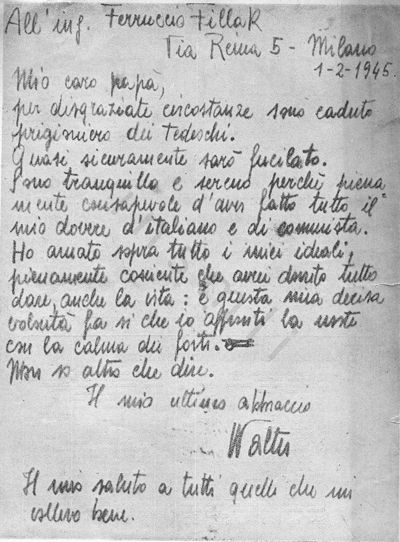 All' ing. Ferruccio Fillak
Via Reina 5 - Milano
1-2-1945.
Mio caro papà,
per disgraziate circostanze sono caduto
prigioniero dei tedeschi.
Quasi sicuramente sarò fucilato.
Sono tranquillo e sereno perchè piena
mente consapevole d'aver fatto tutto il
mio dovere d'italiano e di comunista.
Ho amato sopra tutto i miei ideali,
pienamente cosciente che avrei dovuto tutto
dare, anche la vita: e questa mia decisa
volontà fa sì che io affronti la morte
con la calma dei forti.
Non so altro che dire.
Il mio ultimo abbraccio
Walter
Il mio saluto a tutti quelli che mi
vollero bene.